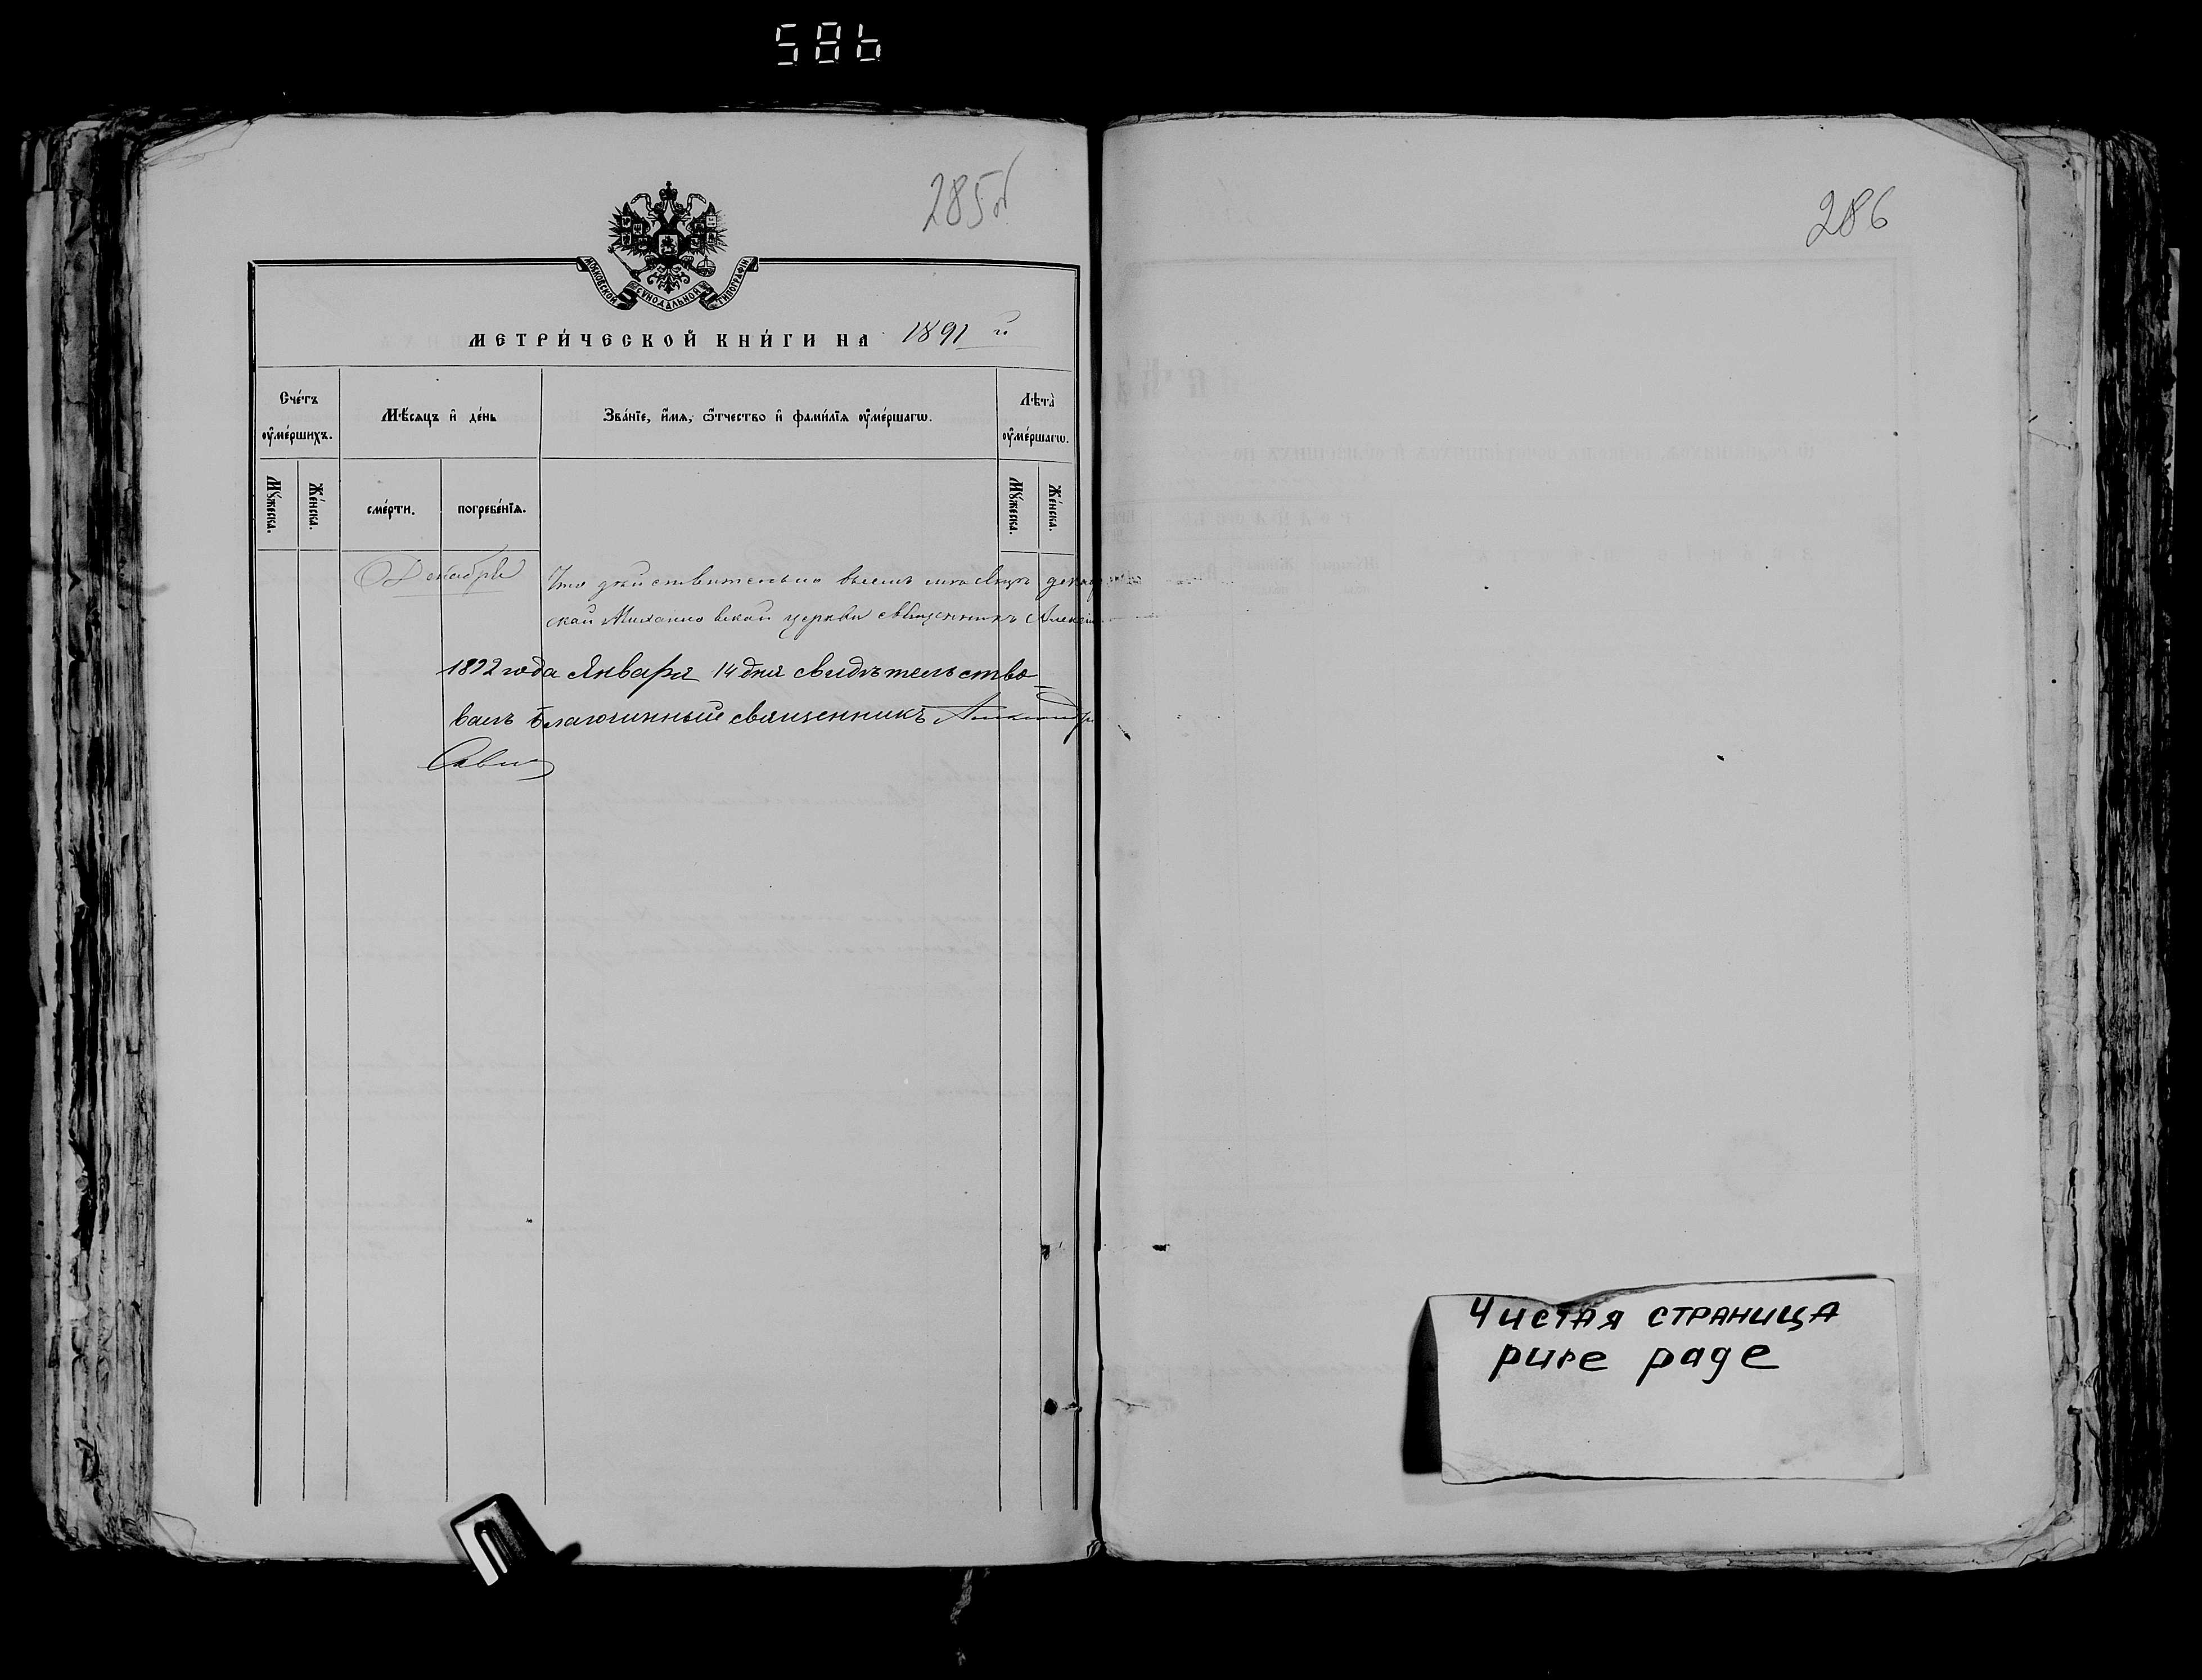 586
285об
МОСКОВСКОЙ СѴНОДАЛЬНОЙ ТИПОГРАФІИ
МЕТРИ́ЧЕСКОЙ КНИ́ГИ НА 1891 й
Сче́тъ оу҆ме́ршихъ.
Мѣ́сяцъ и҆ де́нь
Зва́нїе, и҆́мя, ѻ҆́тчество и҆ фами́лїя оу҆ме́ршагѡ.
Лѣта̀ оу҆ме́ршагѡ.
Мꙋ́жеска.
Же́нска.
сме́рти.
погребе́нїя.
Мꙋ́жеска.
Же́нска.
Декабрь
Что действительно въ семъ месяце
ской Михайловской церкви священникъ Алексій
1892 года Января 14 дня свидѣтельство-
валъ благочинный священникъ Александръ
286
Чистая страница
pure page